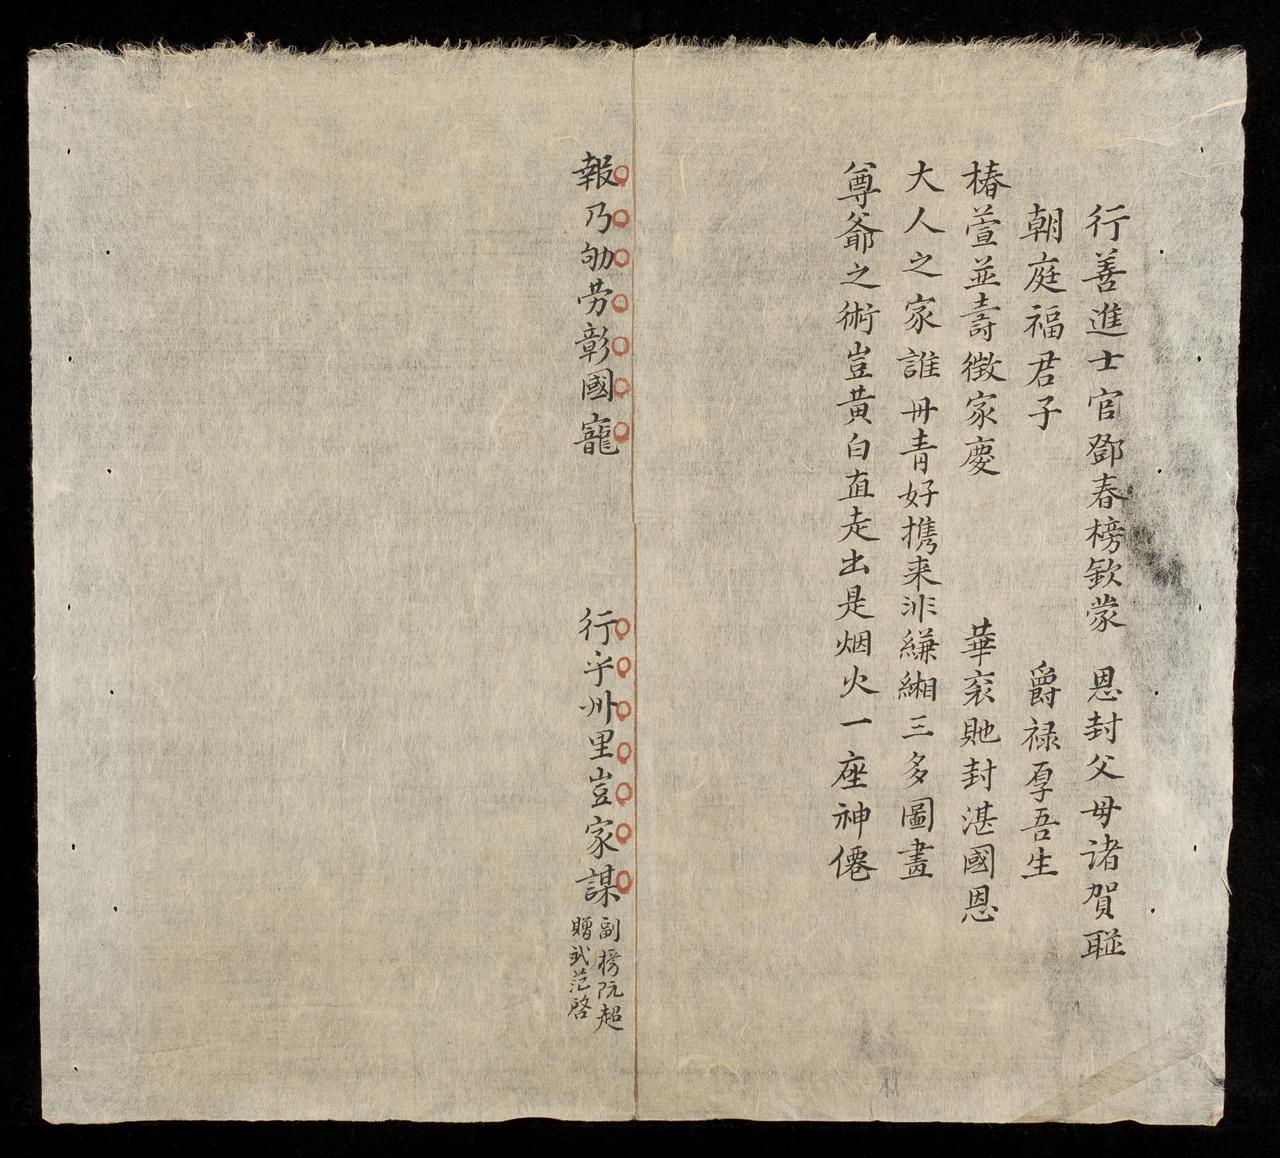 行善進士官鄧春榜欽蒙 恩封父母诸賀聯
朝庭福君子 爵禄厚吾生
椿萱並壽徵家慶 華衮貤封湛國恩
大人之家誰丹青好携来非縑緗三多圖畫
尊爺之術豈黃白直走出是烟火一座神僊
報乃劬劳彰國寵 行乎州里豈家謀
副榜阮超
贈武范啓